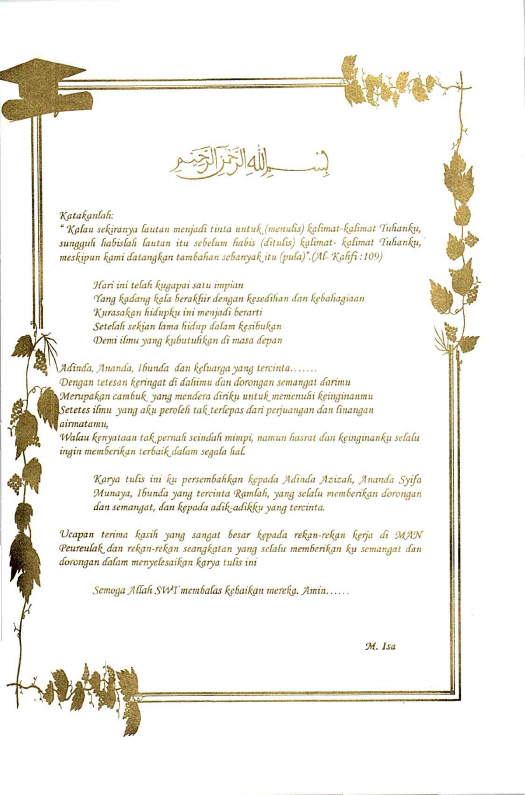 بسم الله الرحمن الرحيم
Katakanlah:
“ Kalau sekiranya lautan menjadi tinta untuk (menulis) kalimat-kalimat Tuhanku,
sungguh habislah lautan itu sebelum habis (ditulis) kalimat- kalimat Tuhanku,
meskipun kami datangkan tambahan sebanyak itu (pula)”.(Al- Kahfi :109)
Hari ini telah kugapai satu impian
Yang kadang kala berakhir dengan kesedihan dan kebahagiaan
Kurasakan hidupku ini menjadi berarti
Setelah sekian lama hidup dalam kesibukan
Demi ilmu yang kubutuhkan di masa depan
Adinda, Ananda, Ibunda dan keluarga yang tercinta…….
Dengan tetesan keringat di dahimu dan dorongan semangat darimu
Merupakan cambuk yang mendera diriku untuk memenuhi keinginanmu
Setetes ilmu yang aku peroleh tak terlepas dari perjuangan dan linangan
airmatamu,
Walau kenyataan tak pernah seindah mimpi, namun hasrat dan keinginanku selalu
ingin memberikan terbaik dalam segala hal.
Karya tulis ini ku persembahkan kepada Adinda Azizah, Ananda Syifa
Munaya, Ibunda yang tercinta Ramlah, yang selalu memberikan dorongan
dan semangat, dan kepada adik-adikku yang tercinta.
Ucapan terima kasih yang sangat besar kepada rekan-rekan kerja di MAN
Peureulak dan rekan-rekan seangkatan yang selalu memberikan ku semangat dan
dorongan dalam menyelesaikan karya tulis ini
Semoga Allah SWT membalas kebaikan mereka. Amin……
M. Isa